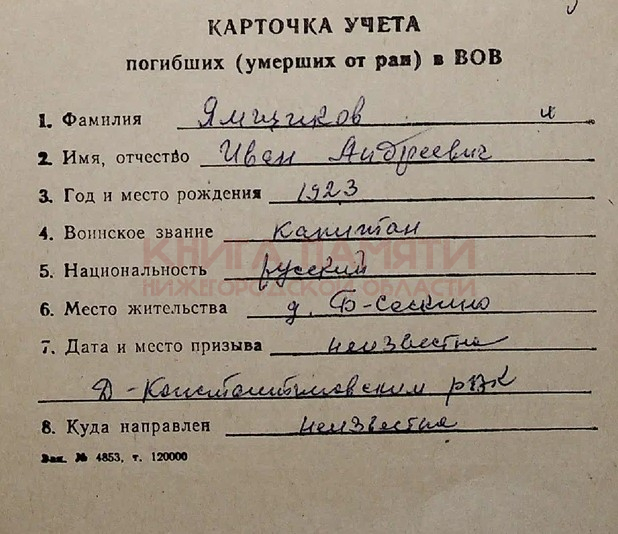 КАРТОЧКА УЧЕТА
погибших (умерших от ран) в ВОВ
1. Фамилия Ямщиков и
2. Имя, отчество Иван Андреевич
3. Год и место рождения 1923
4. Воинское звание капитан
КНИГА ПАМЯТИ
5. Национальность русский
НИЖЕГОРОДСКОЙ ОБЛАСТИ
6. Место жительства д. Б-Сескино
7. Дата и место призыва неизвестна
Д-Константиновским рвк
8. Куда направлен неизвестно
Зак. № 4853, т. 120000